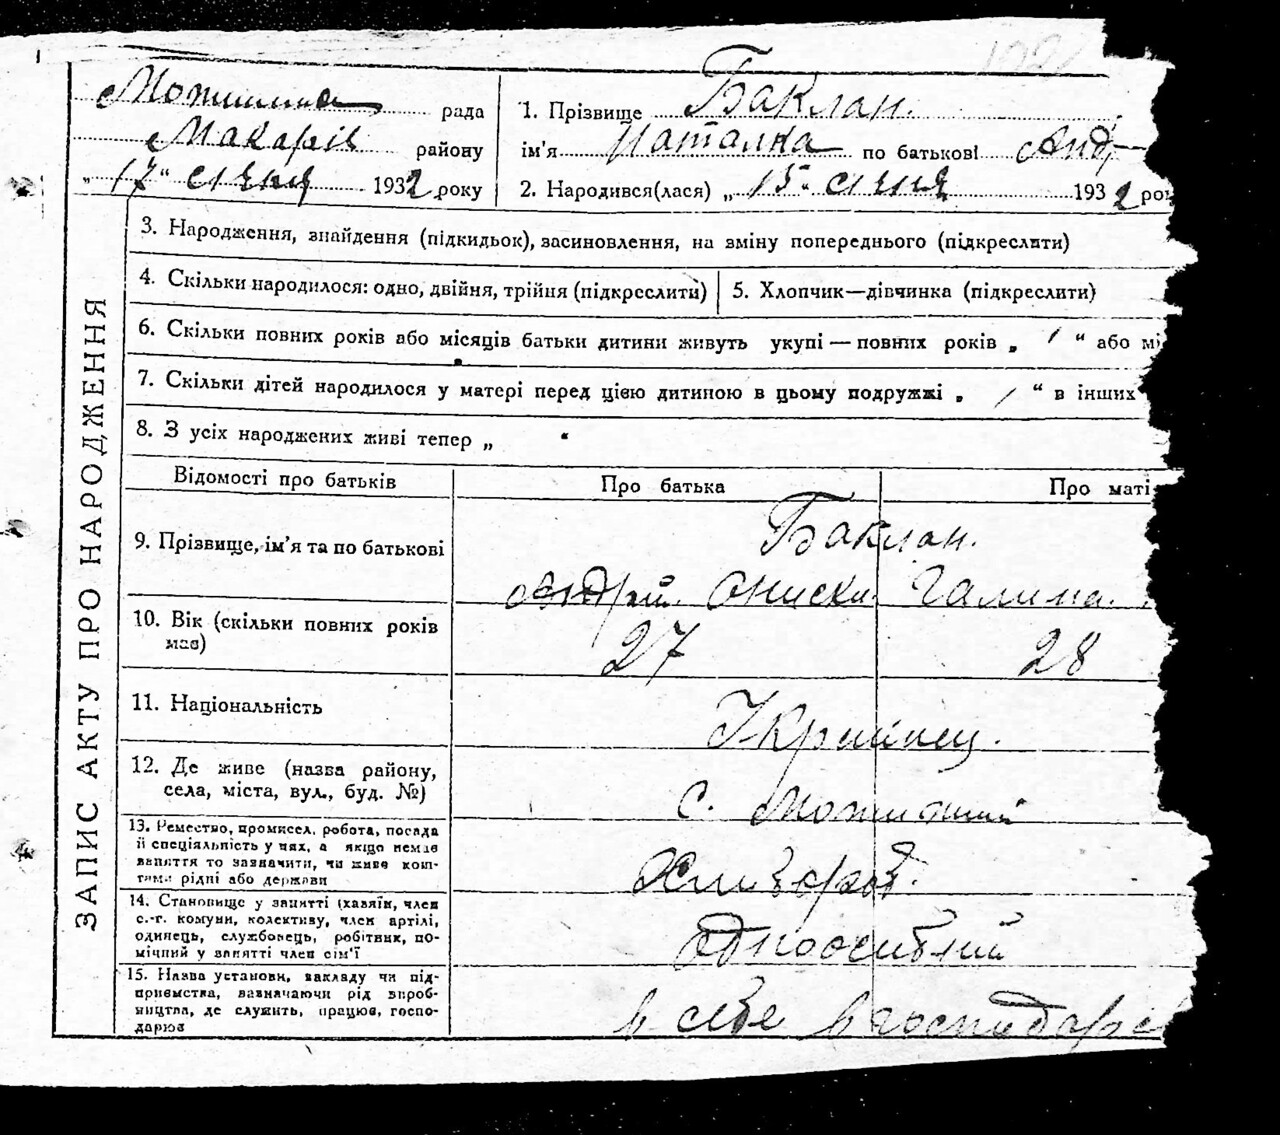 Мотижина рада
Макарів району
„17“ січня 1932 року
1. Прізвище Баклан.
ім'я Наталка по батькові Анд
2. Народився(лася) „15“ січня 1932 рок
ЗАПИС АКТУ ПРО НАРОДЖЕННЯ
3. Народження, знайдення (підкидьок), засиновлення, на зміну попереднього (підкреслити)
4. Скільки народилося: одно, двійня, трійня (підкреслити)
5. Хлопчик—дівчинка (підкреслити)
6. Скільки повних років або місяців батьки дитини живуть укупі — повних років „ 1 “ або мі
7. Скільки дітей народилося у матері перед цією дитиною в цьому подружжі „ / “ в інших
8. З усіх народжених живі тепер „ “
Відомості про батьків
Про батька
Про маті
9. Прізвище, ім'я та по батькові
Баклан.
Андрій. Ониськ. Галина.
10. Вік (скільки повних років
має)
27
28
11. Національність
Українец.
12. Де живе (назва району,
села, міста, вул., буд. №)
с. Мотижин
13. Ремество, промисел, робота, посада
й спеціяльність у них, а якщо немає
заняття то зазначити, чи живе кош-
тами рідні або держави
Хлібороб.
14. Становище у занятті (хазяїн, член
с.-г. комуни, колективу, член артілі,
одинець, службовець, робітник, по-
мічний у занятті член сім'ї
одноосібний
15. Назва установи, закладу чи під-
приємства, зазначаючи рід вироб-
ництва, де служить, працює, госпо-
дарює
в себе в господарс